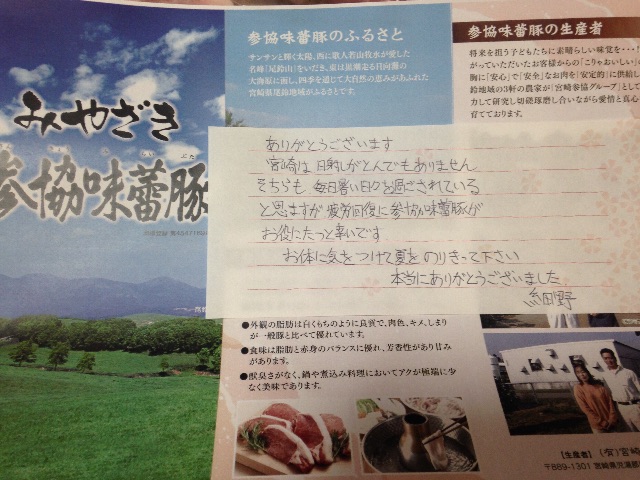 みやざき
参協味蕾豚
参協味蕾豚のふるさと
サンサンと輝く太陽、西に歌人若山牧水が愛した
名峰「尾鈴山」をいだき、東は黒潮走る日向灘の
大海原に面し、四季を通じて大自然の恵みがあふれた
宮崎県尾鈴地域がふるさとです。
参協味蕾豚の生産者
将来を担う子どもたちに素晴らしい味覚を・・・
がっていただいたお客様からの「こりゃおいしい」の
胸に「安心」で「安全」なお肉を「安定的」に供給し
鈴地域の3軒の農家が「宮崎参協グループ」として
力して研究し切磋琢磨し合いながら愛情と真心
育てております。
ありがとうございます
宮崎は日射しがとんでもありません
そちらも毎日暑い日々を過ごされている
と思いますが疲労回復に参協味蕾豚が
お役にたつと幸いです
お体に気をつけて夏をのりきって下さい
本当にありがとうございました
●外観の脂肪は白くもちのように良質で、肉色、キメ、しまり
が一般豚と比べて優れています。
●食味は脂肪と赤身のバランスに優れ、芳香性があり甘み
があります。
●獣臭さがなく、鍋や煮込み料理においてアクが極端に少
なく美味であります。
【生産者】 (有)宮崎
〒889-1301 宮崎県児湯郡